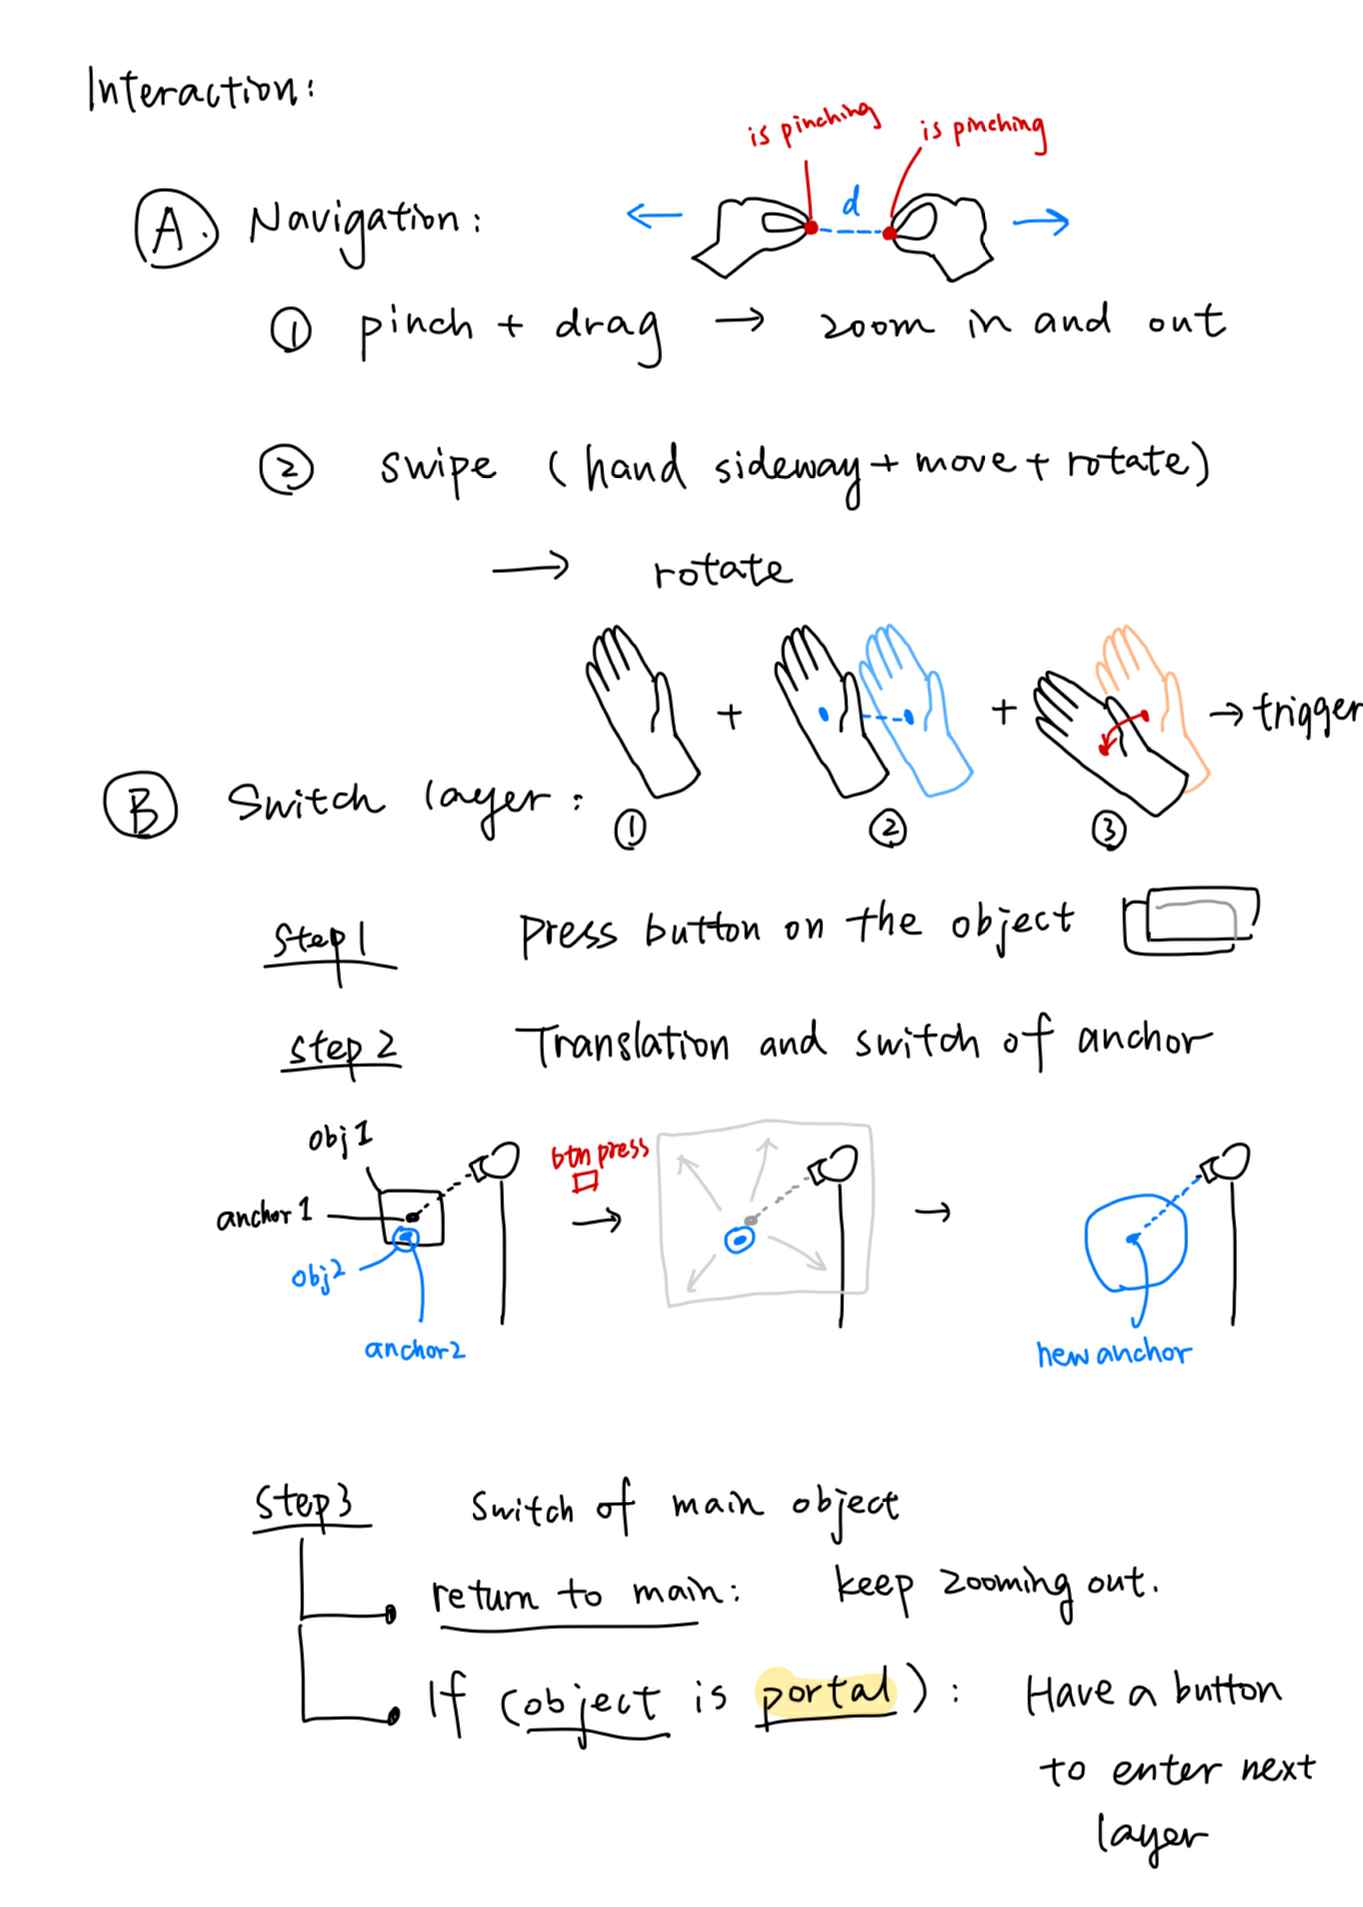 Interaction:
is pinching is pinching
A. Navigation: d
① pinch + drag → zoom in and out
② swipe (hand sideway + move + rotate)
→ rotate
+ + → trigger
B Switch layer: ① ② ③
Step1 Press button on the object
step2 Translation and switch of anchor
obj1
btn press
anchor1 →
→
obj2
anchor2
new anchor
Step3 Switch of main object
return to main: keep zooming out.
If (object is portal): Have a button
to enter next
layer